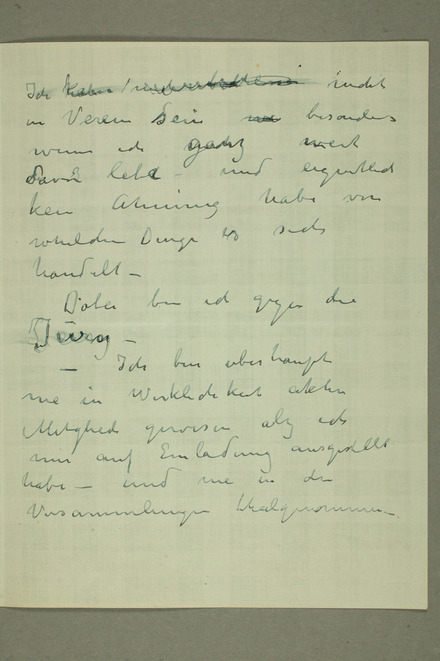 Ich kann nicht
in Verein sein besonders
wenn ich ganz weit
davon lebe - und eigentlich
kein Ahnung habe von
welchen Dinge es sich
handelt -
Dabei bin ich gegen die
Jury -
- Ich bin überhaupt
nie in Wirklichkeit aktiv
Mitglied gewesen als ich
nur auf Einladung ausgestellt
habe - und nie in den
Versammlungen teilgenommen -